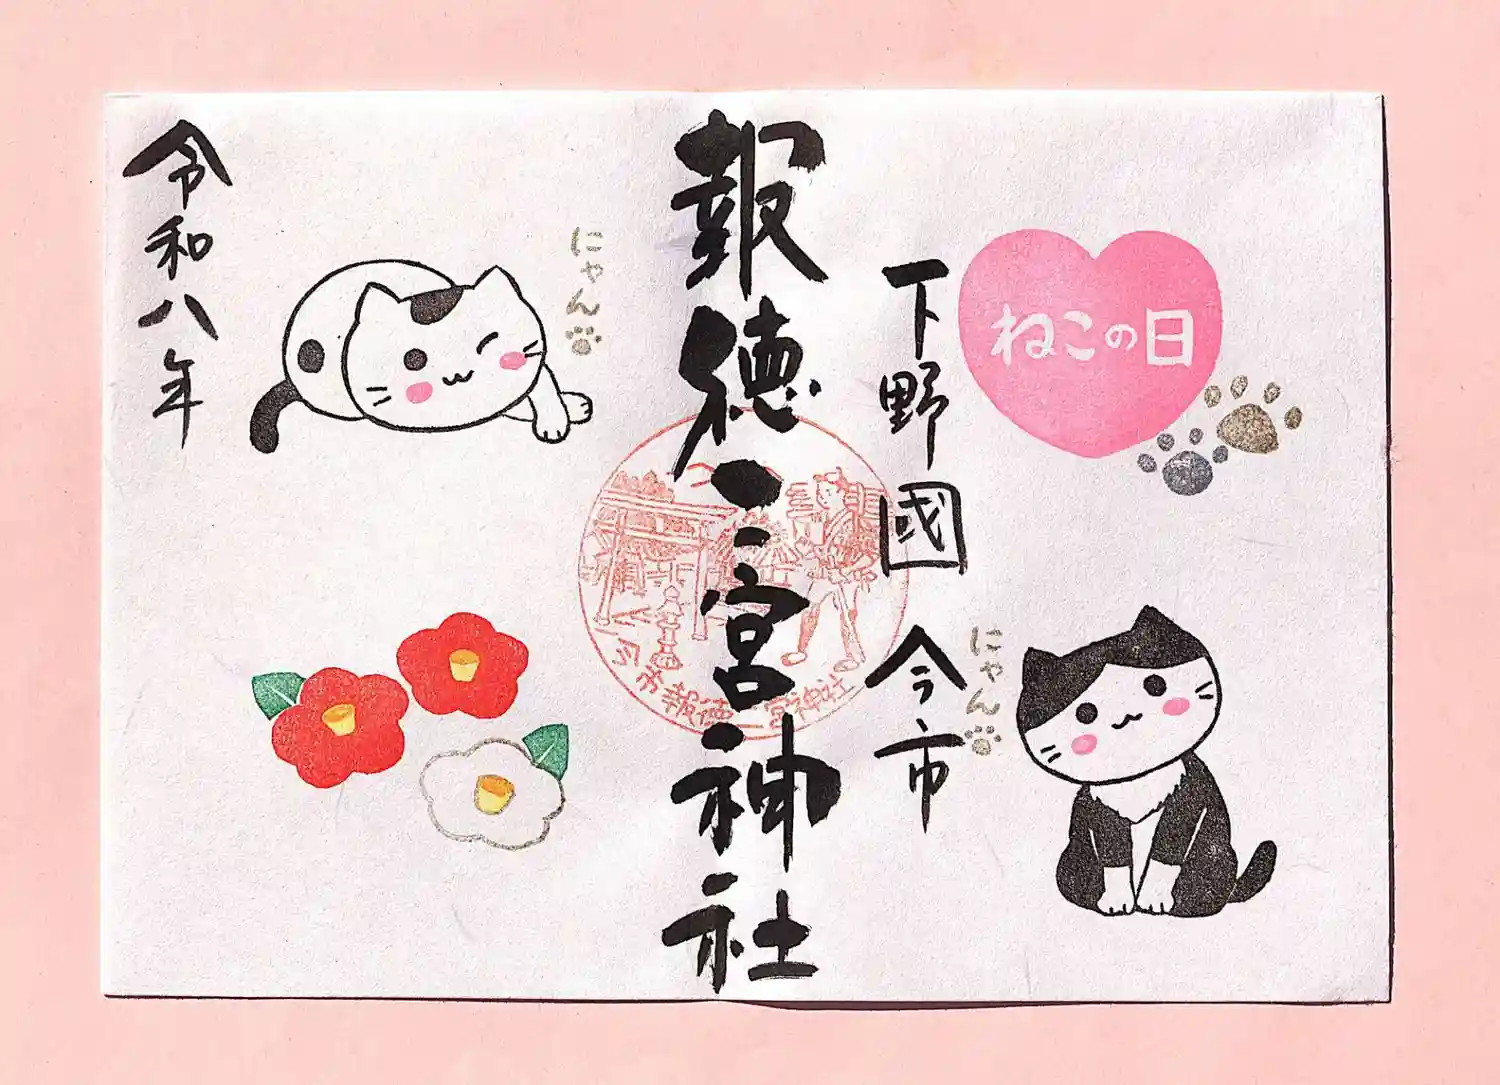 ねこの日
下野國 今市
にゃん
報徳二宮神社
今市報徳二宮神社
にゃん
令和八年